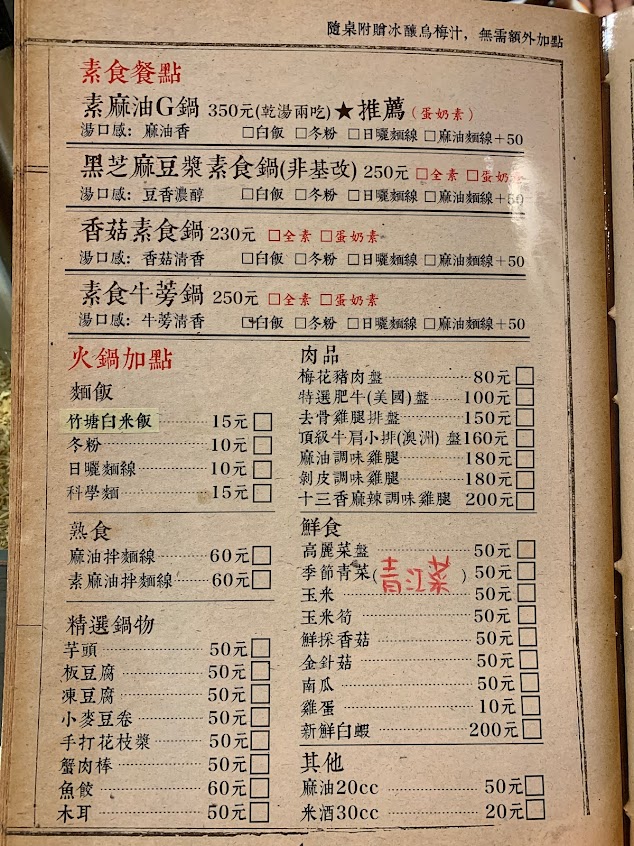 隨桌附贈冰釀烏梅汁，無需額外加點
素食餐點
素麻油G鍋 350元(乾湯兩吃)★推薦(蛋奶素)
湯口感：麻油香 □白飯 □冬粉 □日曬麵線 □麻油麵線+50
黑芝麻豆漿素食鍋(非基改) 250元 □全素 □蛋奶素
湯口感：豆香濃醇 □白飯 □冬粉 □日曬麵線 □麻油麵線+50
香菇素食鍋 230元 □全素 □蛋奶素
湯口感：香菇清香 □白飯 □冬粉 □日曬麵線 □麻油麵線+50
素食牛蒡鍋 250元 □全素 □蛋奶素
湯口感：牛蒡清香 □白飯 □冬粉 □日曬麵線 □麻油麵線+50
火鍋加點
麵飯
竹塘白米飯 15元□
冬粉 10元□
日曬麵線 10元□
科學麵 15元□
熟食
麻油拌麵線 60元□
素麻油拌麵線 60元□
精選鍋物
芋頭 50元□
板豆腐 50元□
凍豆腐 50元□
小麥豆卷 50元□
手打花枝漿 50元□
蟹肉棒 50元□
魚餃 60元□
木耳 50元□
肉品
梅花豬肉盤 80元□
特選肥牛(美國)盤 100元□
去骨雞腿排盤 150元□
頂級牛肩小排(澳洲) 盤160元□
麻油調味雞腿 180元□
剝皮調味雞腿 180元□
十三香麻辣調味雞腿 200元□
鮮食
高麗菜盤 50元□
季節青菜(青江菜) 50元□
玉米 50元□
玉米筍 50元□
鮮採香菇 50元□
金針菇 50元□
南瓜 50元□
雞蛋 10元□
新鮮白蝦 200元□
其他
麻油20cc 50元□
米酒30cc 20元□